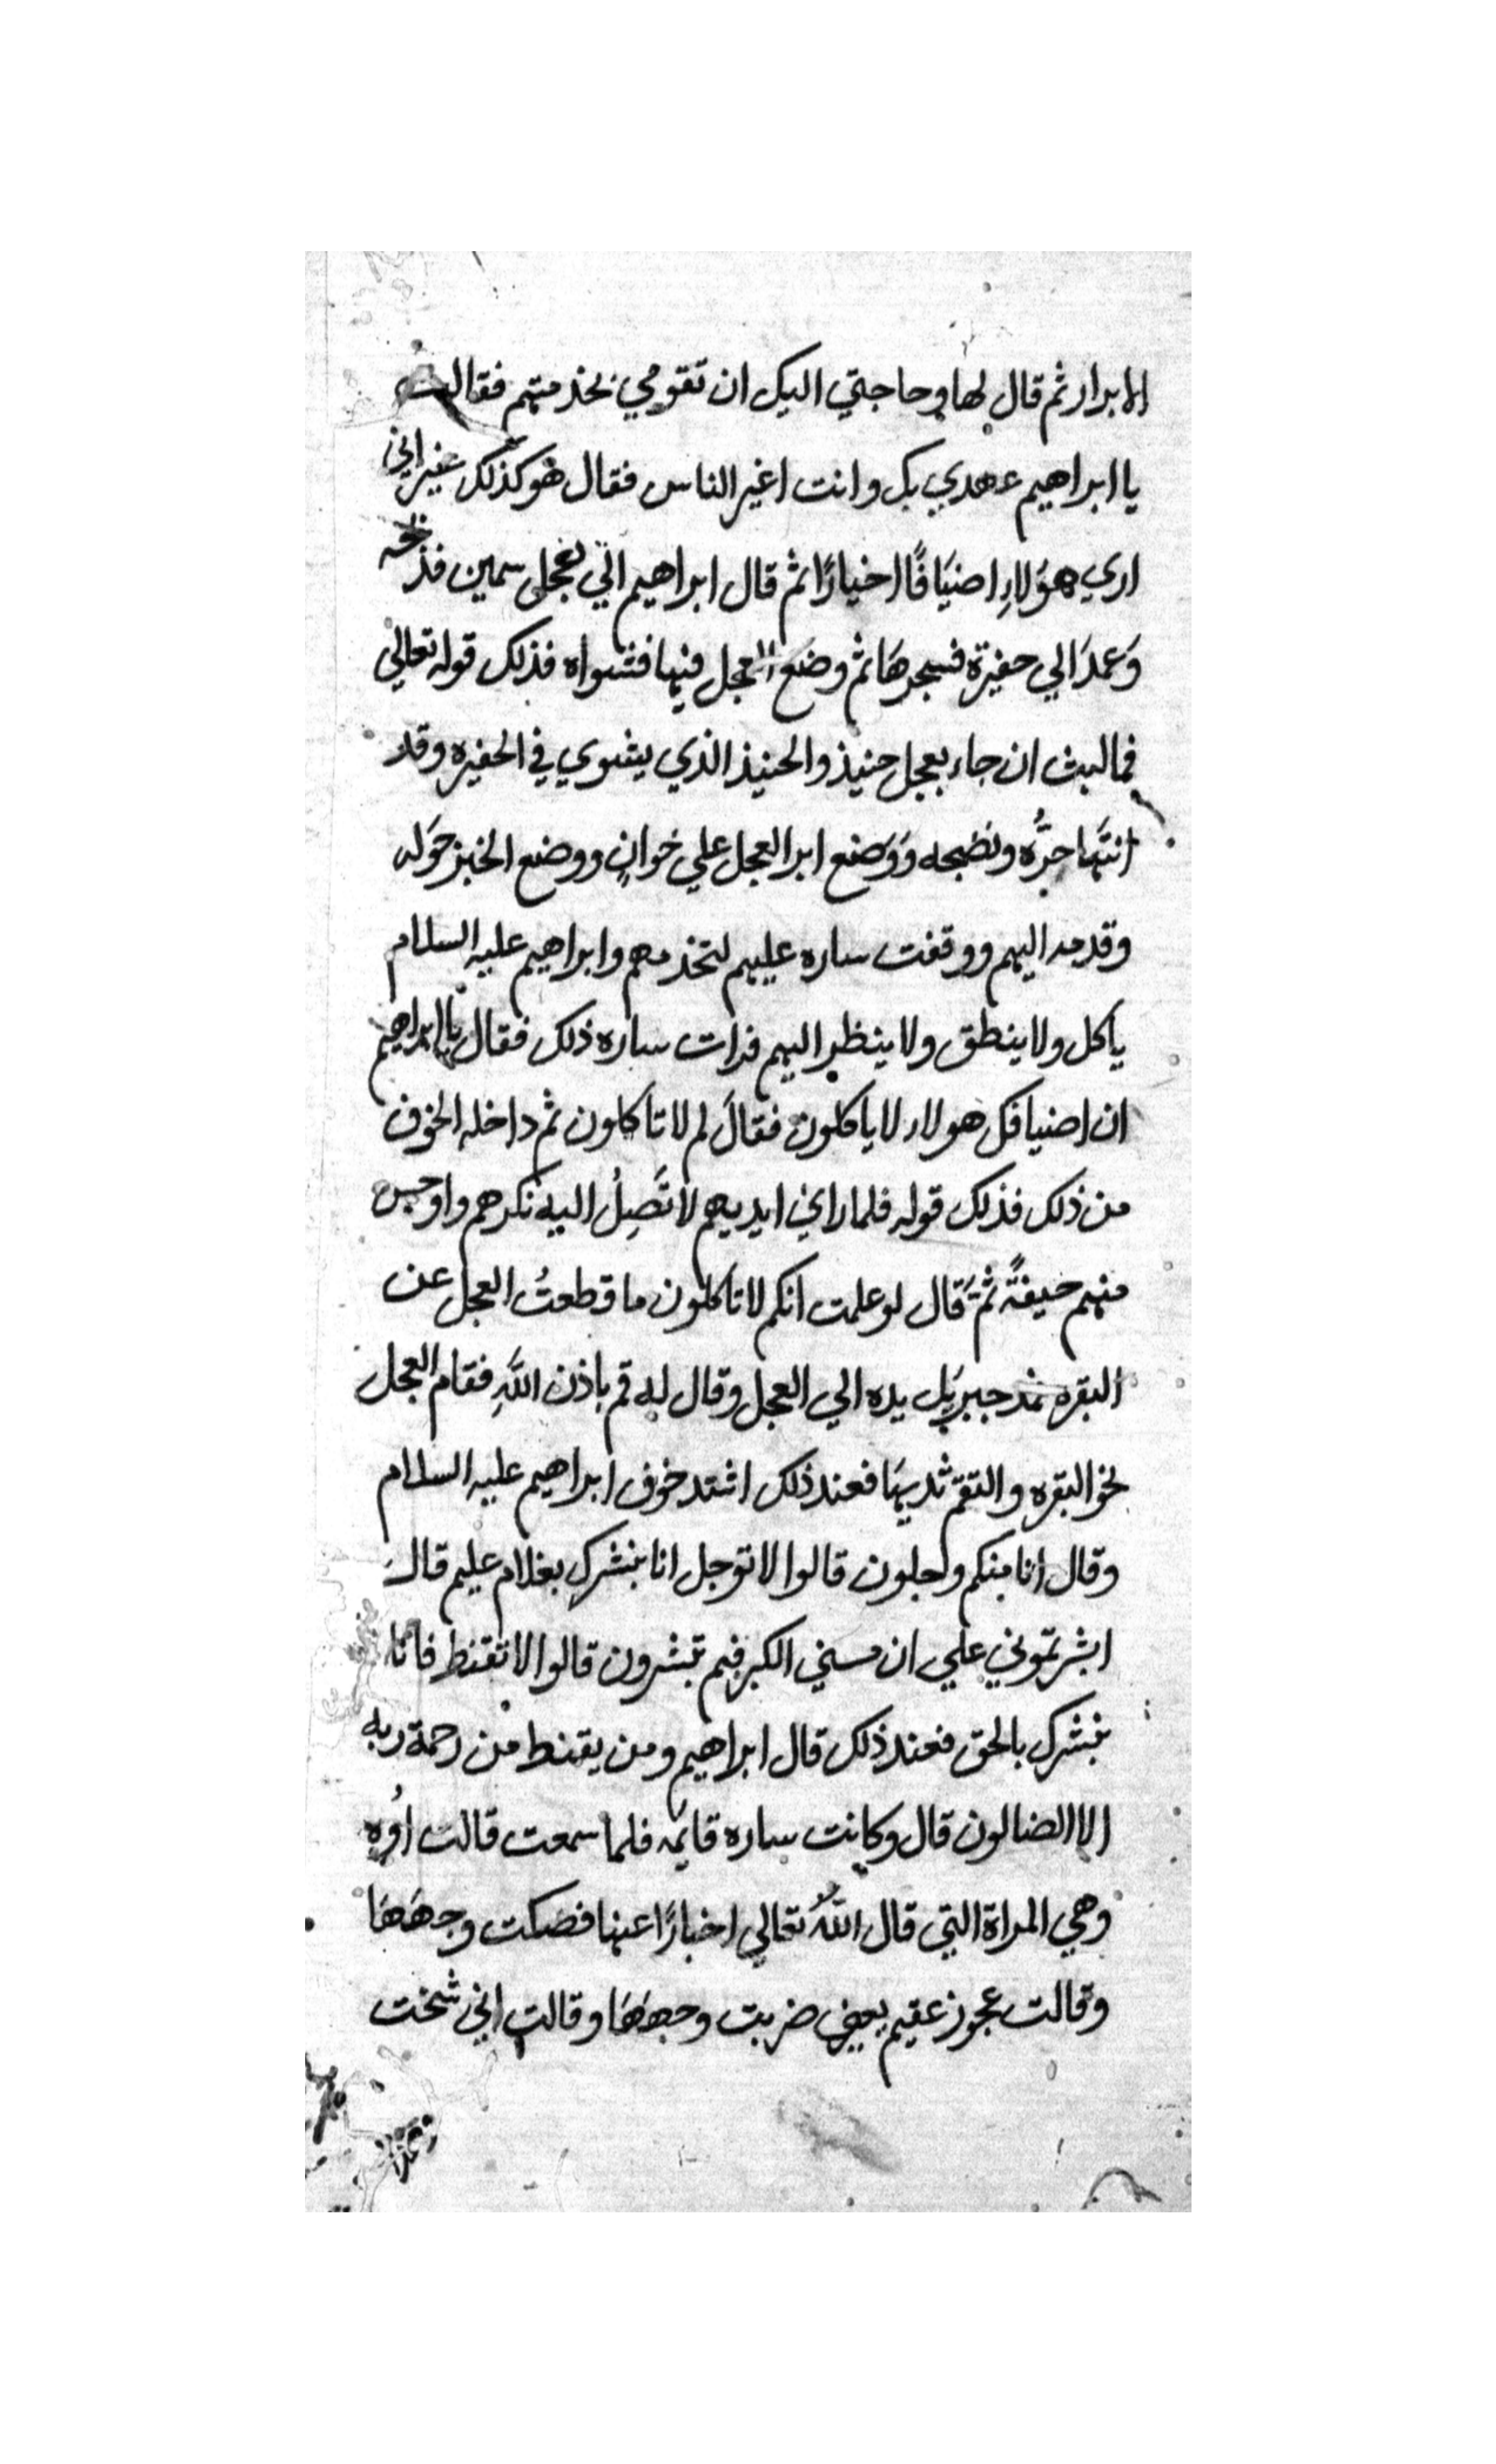 الابرار ثم قال لها وحاجتي اليك ان تقومي بخدمتهم فقالت
يا ابراهيم عهدي بك وانت اغير الناس فقال هو كذلك غير اني
اري هؤلاءِ اضيَافًا اخيارًا ثم قال ابراهيم الي عجل سمين فذبحه
وَعمدَ الي حفيرة فسجرهَا ثم وضع العجل فيها فشواه فذلك قوله تعالي
فما لبث ان جاء بعجل حنيذ والحنيذ الذي يشوي في الحفيره وقد
انتهَا حرُّه ونضجه وَوَضع ابرا العجل علي خوانٍ ووضع الخبز حَوله
وقدمه اليهم ووقفت ساره عليهم لتخدمهم وابراهيم عليه السلام
ياكل ولا ينطق ولا ينظر اليهم فرات ساره ذلك فقال يا ابراهيم
ان اضيافك هولاء لا ياكلون فقالَ لم لا تاكلون ثم داخله الخوف
من ذلك فذلك قوله فلما راي ايديهم لا تَصِلُ اليه نكرهم واوجس
منهم خيفةً ثمَ قال لو علمت انكم لا تاكلون ما قطعتُ العجل عن
البقره فمد جبريل يده الي العجل وقال له قم باذن اللَّهِ فقام العجل
نحو البقره والتقم ثديهَا فعند ذلك اشتد خوف ابراهيم عليه السلام
وقال انا منكم وجلون قالوا لا توجل انا نبشرك بغلام عليم قالَ
ابشرتموني علي ان مسني الكبر فبم تبشرون قالوا لا تقنط فانا
نبشرك بالحق فعند ذلك قال ابراهيم ومن يقنط من رحمة ربه
الا الضالون قال وكانت ساره قايمه فلما سمعت قالت اُوه
وهي المراة التي قال اللهُ تعالي اخبارًا عنها فصكت وجهَهَا
وقالت عجوز عقيم يعني ضربت وجههَا وقالت اني شخت